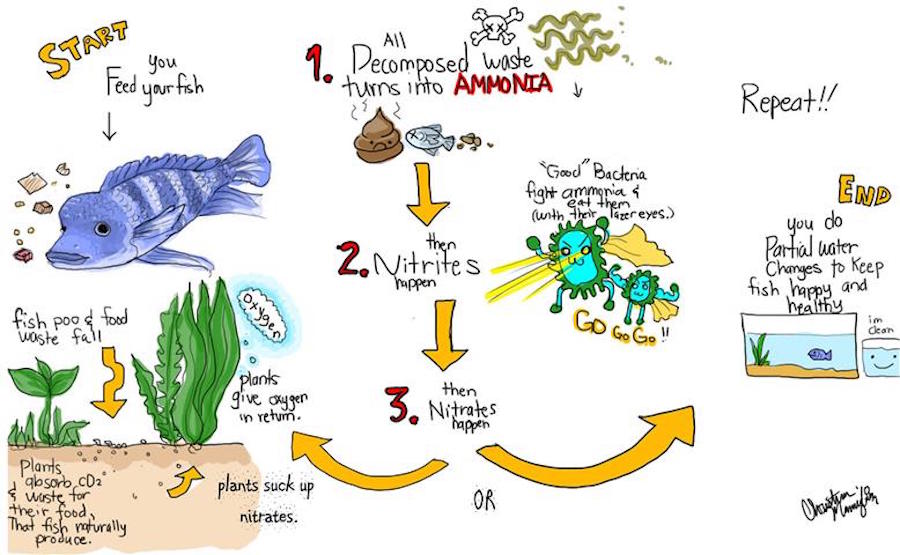 START
you
Feed your fish
fish poo & food
waste fall
oxygen
plants
give oxygen
in return.
Plants
absorb CO2
& waste for
their food,
That fish naturally
produce.
plants suck up
nitrates.
1. All
Decomposed waste
turns into AMMONIA
"Good" Bacteria
fight ammonia &
eat them
(with their lazer eyes.)
GO GO GO!!
2. then
Nitrites
happen
3. then
Nitrates
happen
OR
Repeat!!
END
you do
Partial water
Changes to keep
fish happy and
healthy
im
clean